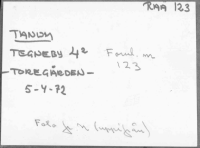 RAÄ 123
TANUM
TEGNEBY 4²
Fornl. nr
123
- TOREGÅRDEN -
5-4-72
Foto
(uppifrån)